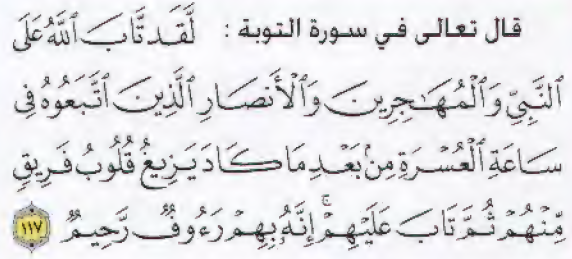 قال تعالى في سورة التوبة : لَّقَد تَّابَ ٱللَّهُ عَلَى
ٱلنَّبِيِّ وَٱلْمُهَٰجِرِينَ وَٱلْأَنصَارِ ٱلَّذِينَ ٱتَّبَعُوهُ فِى
سَاعَةِ ٱلْعُسْرَةِ مِنۢ بَعْدِ مَا كَادَ يَزِيغُ قُلُوبُ فَرِيقٍ
مِّنْهُمْ ثُمَّ تَابَ عَلَيْهِمْ ۚ إِنَّهُۥ بِهِمْ رَءُوفٌ رَّحِيمٌ ١١٧